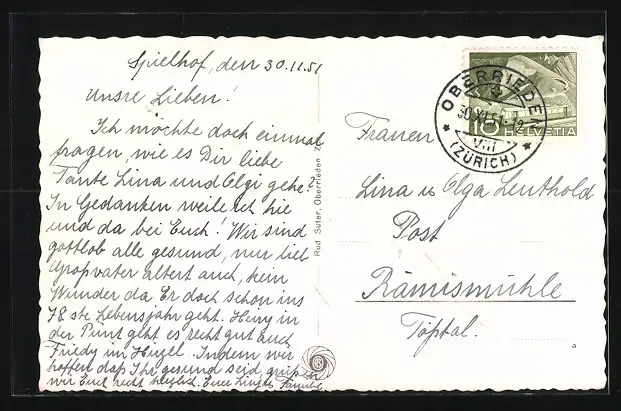 Spielhof, den 30.11.51
Unsre Lieben!
Ich möchte doch einmal
fragen, wie es Dir liebe
Tante Lina und Olgi geht?
In Gedanken weile ich hie
und da bei Euch. Wir sind
gottlob alle gesund, nur lieb
Grossvater altert auch, kein
Wunder da Er doch schon ins
78.ste Lebensjahr geht. Heiny in
der Pünt geht es recht gut auch
Friedy im Hirzel. Indem wir
hoffen dass Ihr gesund seid grüssen
wir Euch recht herzlich. Eure Familie
Rud Suter, Oberrieden Zch.
OBERRIEDEN
30.XI.51
VIII
(ZÜRICH)
10 HELVETIA
Frauen
Lina u Olga Leuthold
Post
Rämismühle
Tösstal.
a